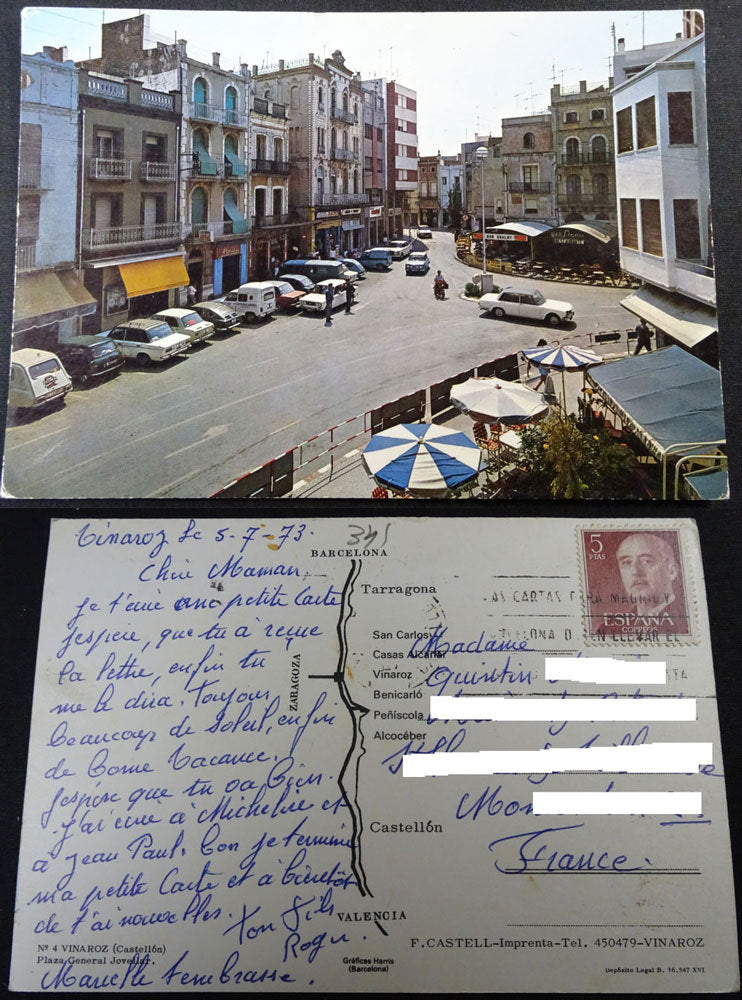 Vinaroz le 5-7-73.
345
Chère Maman.
je t'ecrie une petite Carte
j'espere, que tu à reçue
la lettre, enfin tu
me le dira. Toujour,
beaucoup de Soleil, enfin
de bonne Vacance.
j'espère que tu va bien.
j'ai ecrie à Micheline et
à Jean Paul. bon je termine
ma petite Carte et à bientôt
de t'ai nouvelles.
Ton fils
Roger.
Marcelle t'embrasse.
Nº 4 VINAROZ (Castellón)
Plaza General Jovellar.
BARCELONA
Tarragona
San Carlos
Casas Alcanar
Vinaroz
Benicarló
Peñíscola
Alcocéber
ZARAGOZA
Castellón
VALENCIA
Gráficas Harris
(Barcelona)
5
PTAS
ESPAÑA
CORREOS
CARTAS PARA MADRID Y
LLEVAR EL
Madame
Quintin
France.
F. CASTELL-Imprenta-Tel. 450479-VINAROZ
Depósito Legal B. 16.547 XVI